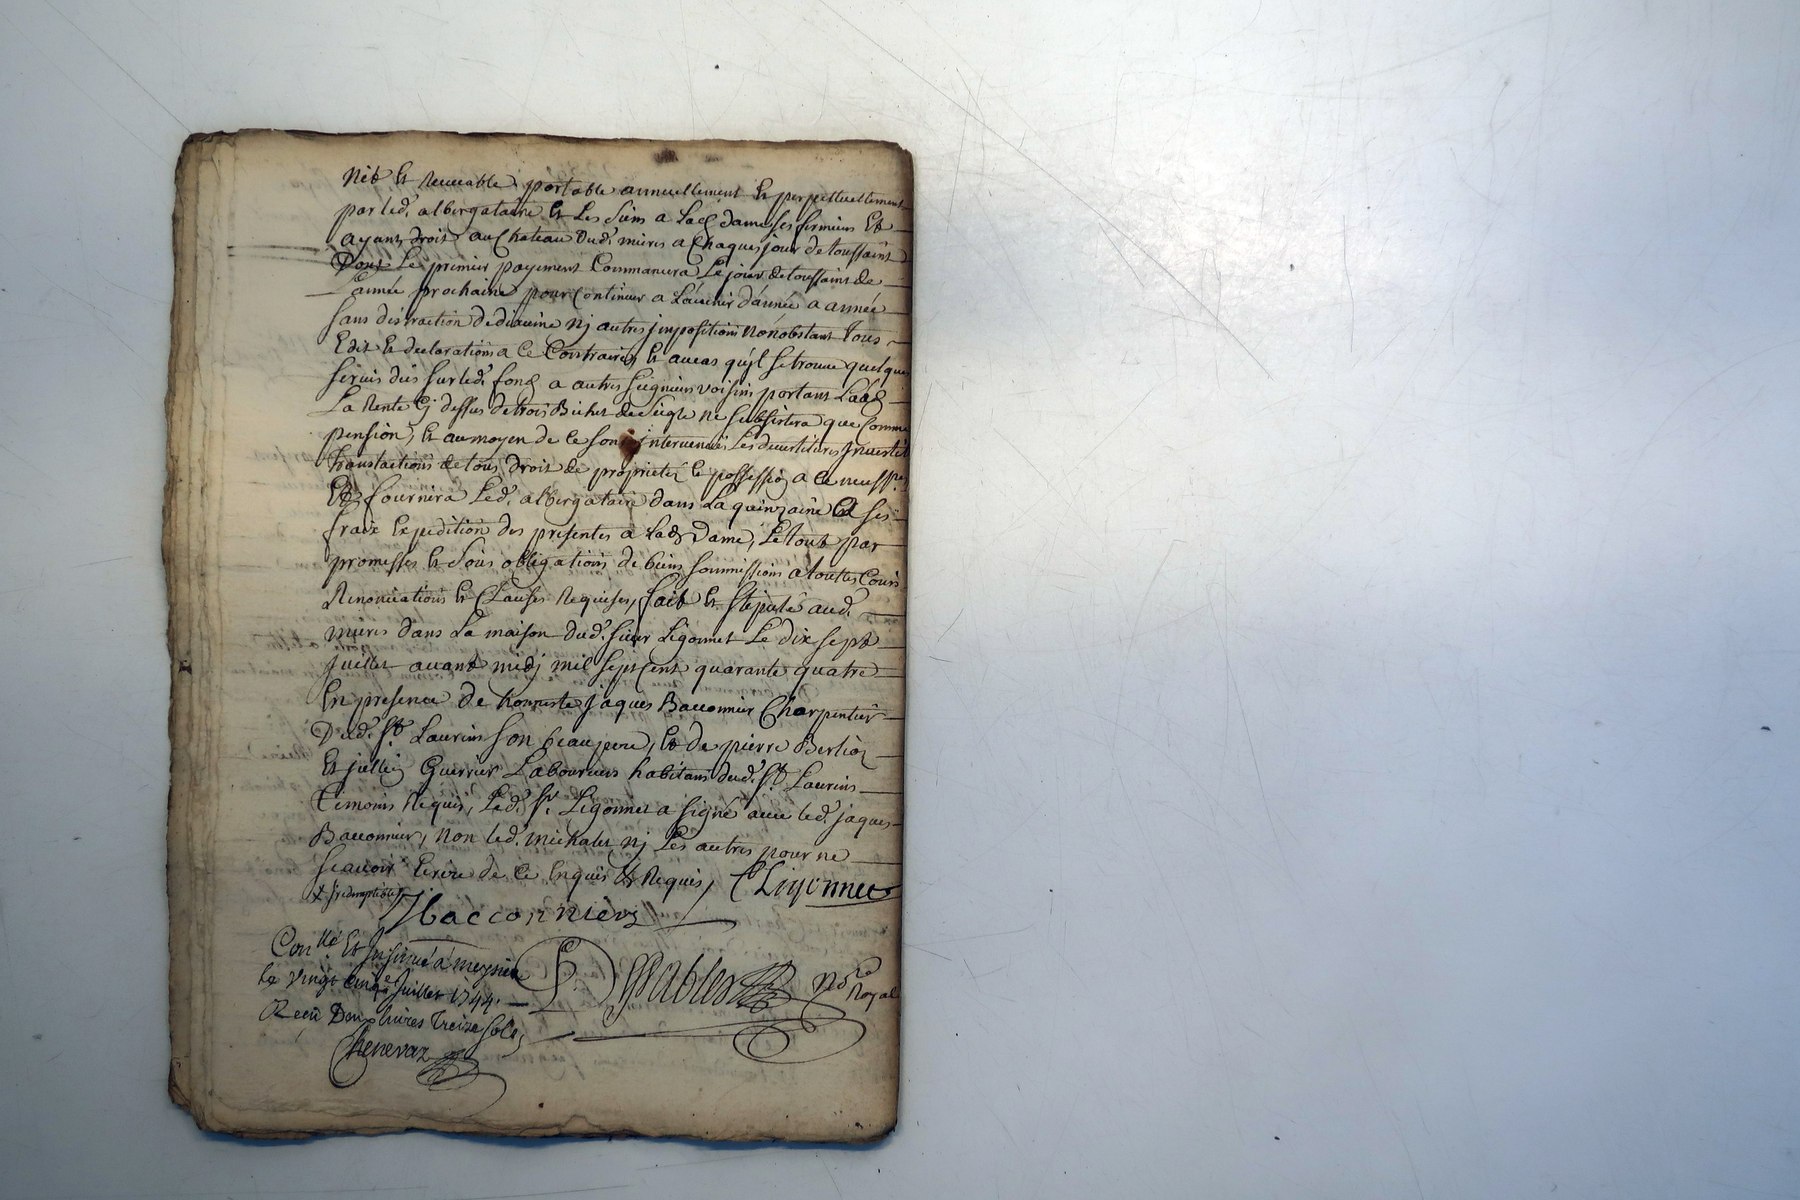 net et recevable portable annuellement et perpetuellement
par led. albergataire et les siens a lad dame ses fermiers et
ayants droit au Chateau dud. mures a chaque jour de toussaint
Dont le premier payement Commancera le jour de toussaint de
l'année prochaine pour Continuer a l'avenir d'année a année
sans distraction de dixieme nj autres jmpositions nonobstant tous
Edit et declarations a Ce Contraires, et au cas qu'jl se trouve quelques
servis dus sur led. fond a autres seigneurs voisins portant
La Rente Cj dessus de trois Bichet de seigle ne subsistera que Comme
pension, et au moyen de ce sont jntervenues Les devestitures
translations de tous droit de proprieté et possession a ce necess.res
Et fournira Led. albergataire dans La quinzaine a ses
frais Expedition des presentes a lad Dame, Le tout par
promesses et sous obligations de biens soumissions a toutes Cours
Renonciations et Clauses Requises, fait et stipulé aud.
mures dans La maison dud. sieur Ligonnet Le dix sept
juillet avant midj mil sept Cent quarante quatre
En presence de honneste jaques Bacconnier Charpentier
Dud. St. Laurens son beaupere, et de pierre Berlioz
Et jullien Guerrier Laboureurs habitans dud. St. Laurens
temoins Requis, Led. Sr. Ligonnet a signé avec led. jaques
Bacconnier, non led. michalet nj Les autres pour ne
scavoir Ecrire de ce Enquis et Requis, Ligonnet
Jbacconnier
Con.llé Et jnsinué a meyrieu
le vingt Cinqe Juillet 1744.
Reçu Deux livres treize sols
Chenevaz
Pables Nore Royal